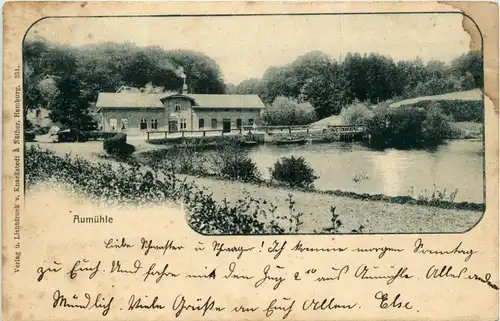 Aumühle
Liebe Schwester u. Schwager! Ich komme morgen Sonntag
zu Euch. Und fahre mit dem Zug 2¹⁰ aus Aumühle. Alles andere
Mündlich. Viele Grüße an Euch Allen. Else.
Verlag u. Lichtdruck v. Knackstedt & Näther, Hamburg.